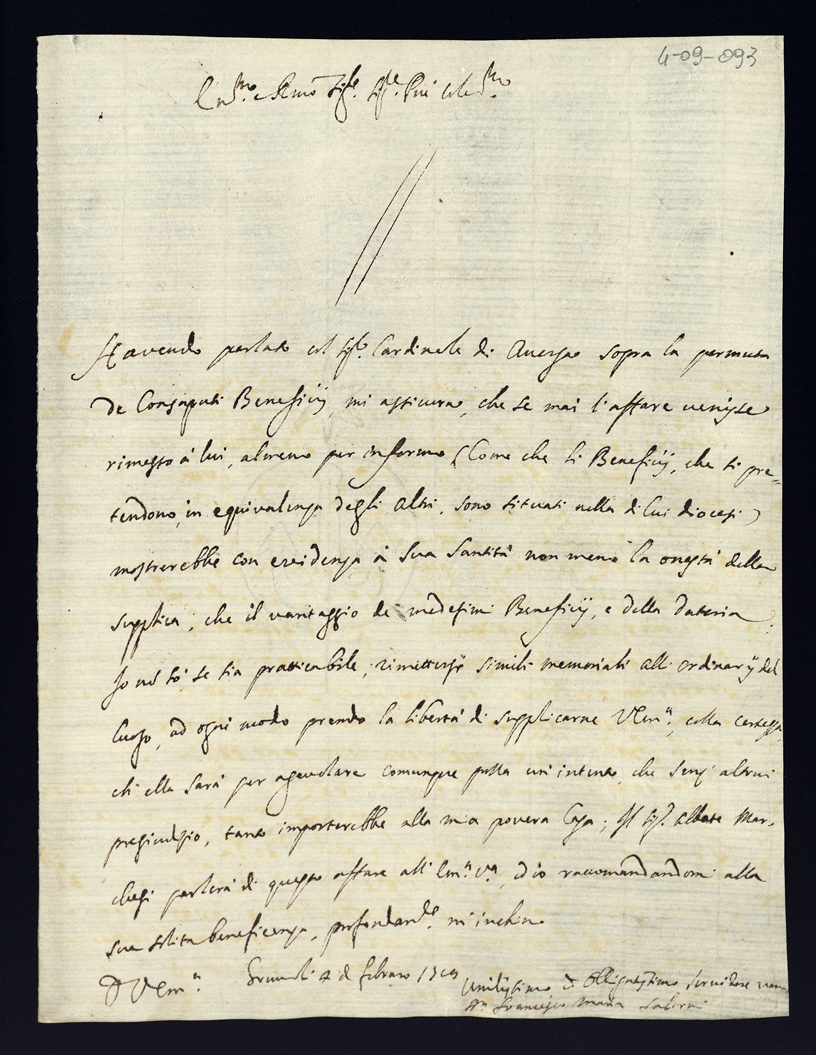 4-09-093
Em.mo e Rmo Sig.re Sig.re Pne Col.mo
Havendo parlato col Sig.r Cardinale di Aversa sopra la permuta
de Consaputi Beneficij, mi assicura, che se mai l'affare venisse
rimesso à lui, almeno per informo (Come che li Beneficij, che si pre=
tendono in equivalenza degli altri, sono situati nella di lui diocesi)
mostrerebbe con evidenza à Sua Santità non meno la onestà della
supplica, che il vantaggio de medesimi Beneficij, e della Dataria;
Io nò sò, se sia pratticabile, rimettersi simili memoriali alli ordinarij del
luogo, ad ogni modo prendo la libertà di supplicarne VEm.a, colla certezza
ch'ella sarà per agevolare comunque possa un'intento, che senz'altrui
pregiudizio, tanto importerebbe alla mia povera Casa; Il Sig.r Abbate Mar=
chesi parlerà di questo affare all'Em.a V.a, ed io raccomandandomi alla
sua solita beneficenza, profondam.te m'inchino
D VEm.a Grumo li 4 di febraro
Umilissimo ed Obligatissimo Servitore vero
Francesco Maria Salerni